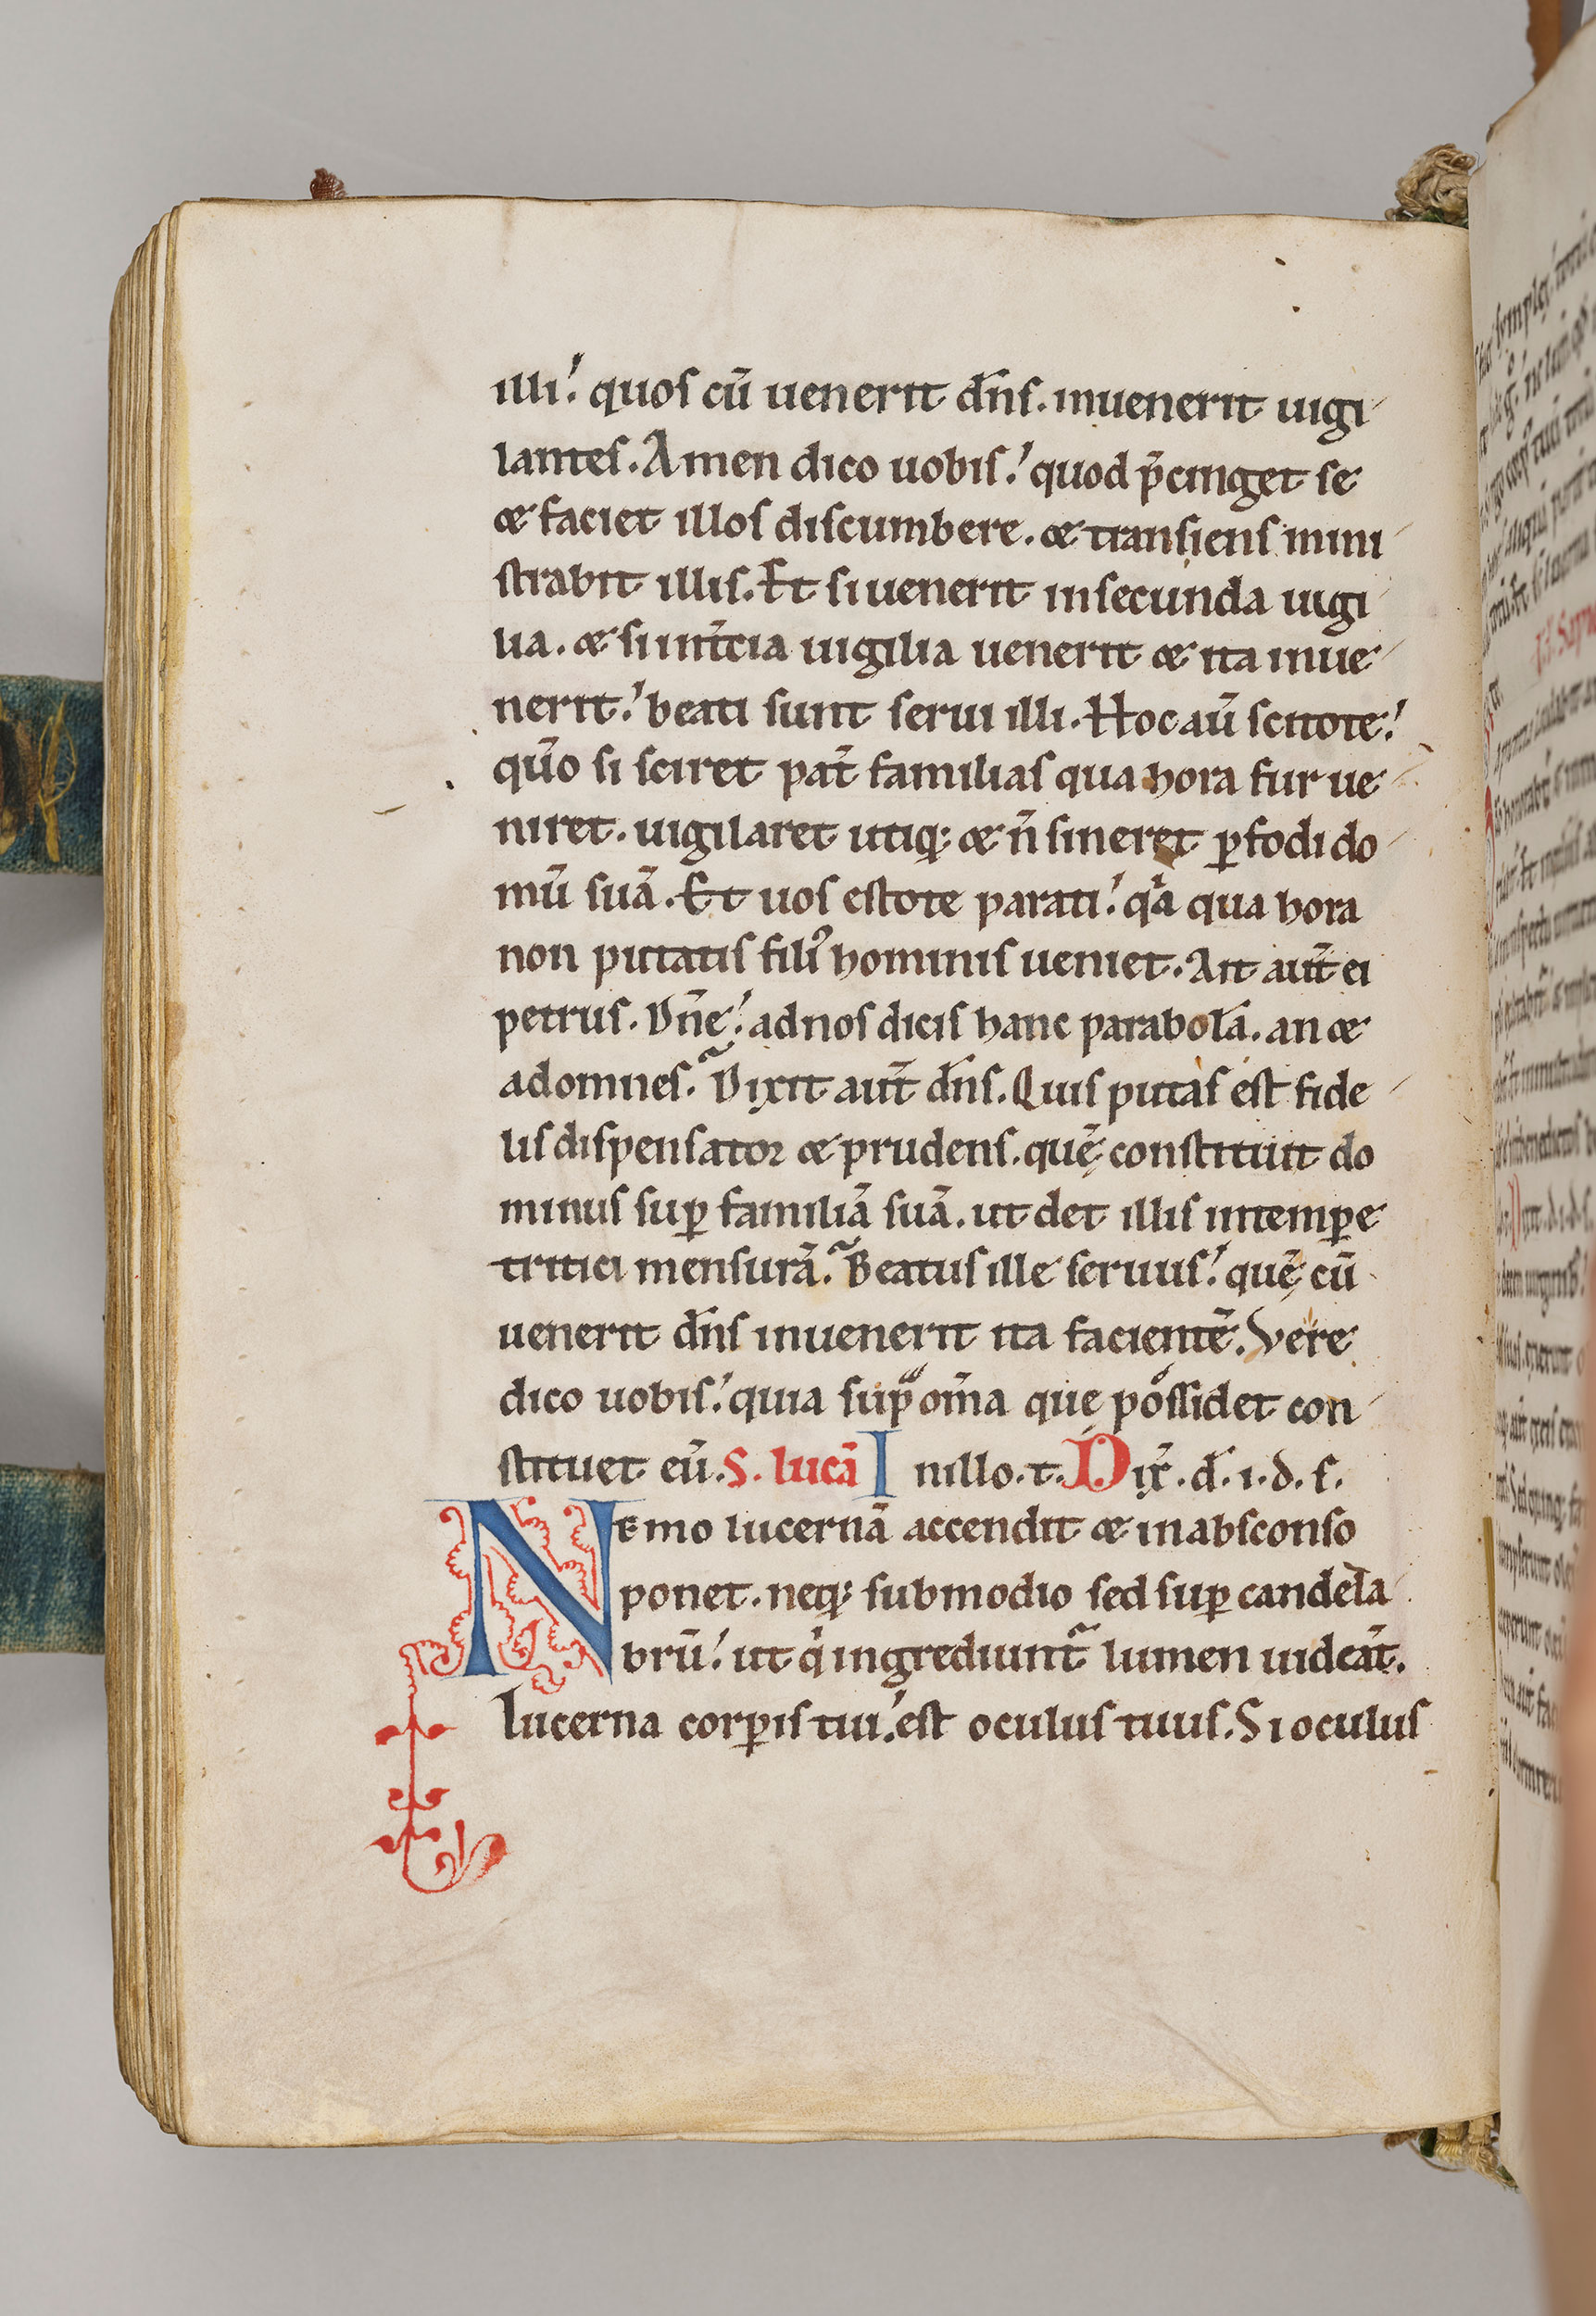 illi. quos cū uenerit dn̄s. inuenerit uigi
lantes. Amen dico uobis. quod p̄cinget se
& faciet illos discumbere. & transiens mini
strabit illis. Et si uenerit in secunda uigi
lia. & si in t̄cia uigilia uenerit & ita inue
nerit. beati sunt serui illi. Hoc aū scitote.
qūo si sciret pat̄ familias qua hora fur ue
niret. uigilaret utiq; & n̄ sineret ꝑfodi do
mū suā. Et uos estote parati. qa qua hora
non putatis filiꝰ hominis ueniet. Ait aut̄ ei
petrus. Dn̄e. ad nos dicis hanc parabolā. an &
ad omnes. Dixit aut̄ dn̄s. Quis putas est fide
lis dispensator & prudens. quē constituit do
minus suꝑ familiā suā. ut det illis in temꝑe
tritici mensurā. Beatus ille seruus. quē cū
uenerit dn̄s inuenerit ita facientē. Vere
dico uobis. quia suꝑ om̄a que possidet con
stituet eū. S. lucā In illo. t. Dix̄. d̄. i. d. s.
Nemo lucernā accendit & in absconso
ponet. neq; sub modio sed suꝑ candela
brū. ut qi ingrediunt̄ lumen uideāt.
lucerna corꝑis tui. est oculus tuus. Si oculus